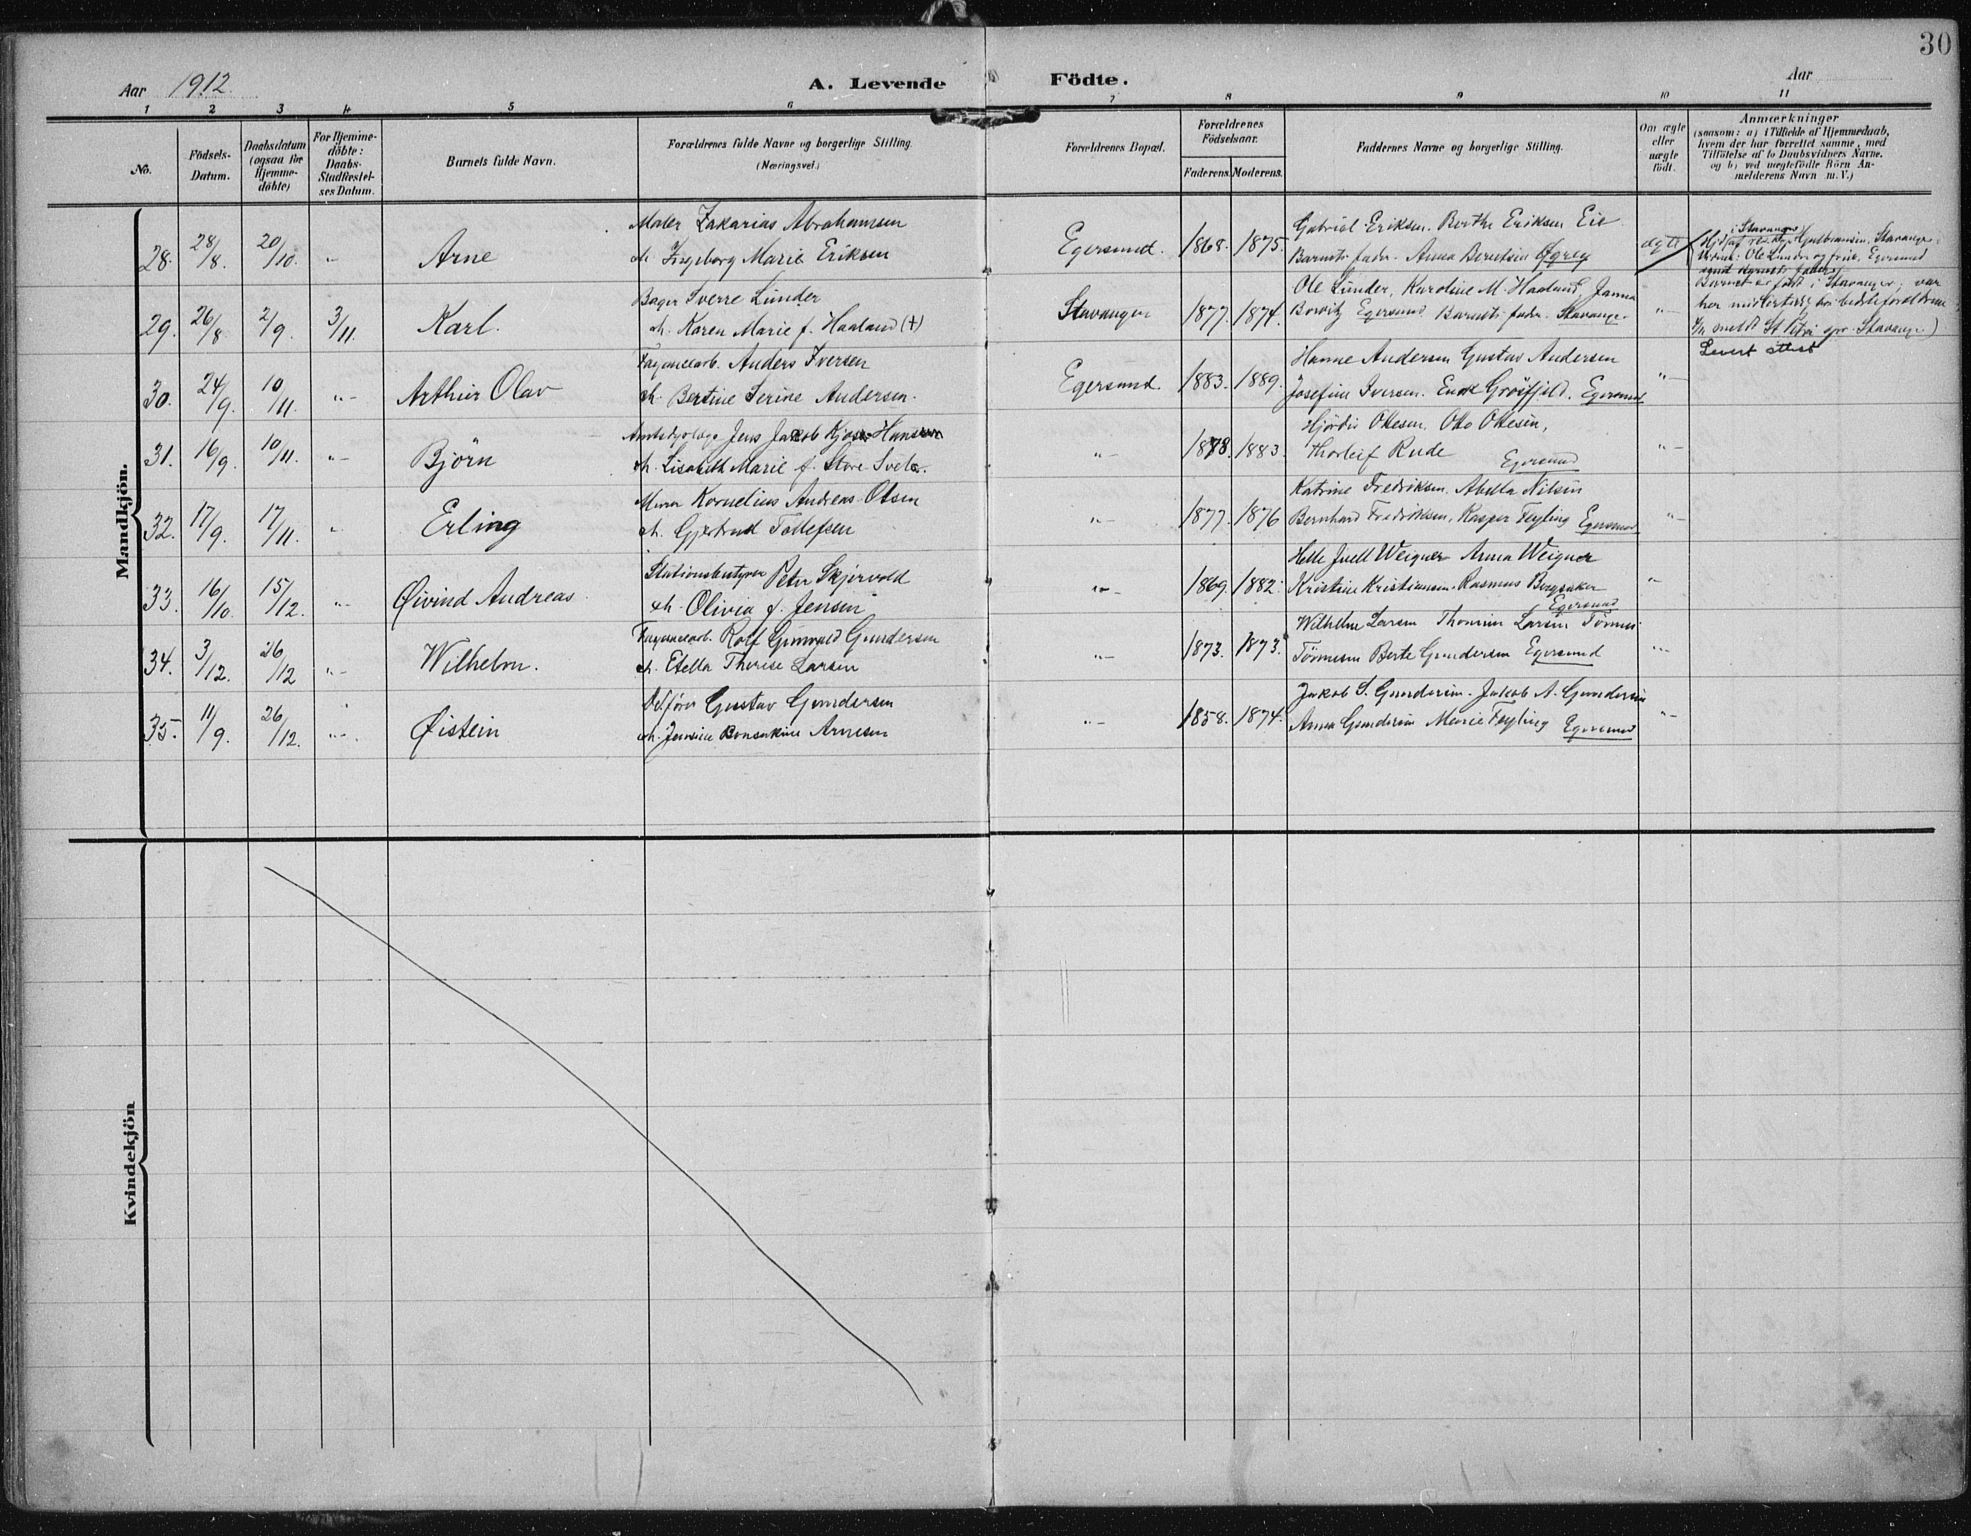 30
Aar 1912.
A. Levende Födte.
Aar
1 2 3 4 5 6 7 8 9 10 11
No.
Födsels-
Datum.
Daabsdatum
(ogsaa for
Hjemme-
döbte)
For Hjemme-
döbte:
Daabs-
Stadfæstel-
ses Datum.
Barnets fulde Navn.
Forældrenes fulde Navne og borgerlige Stilling.
(Næringsvei.)
Forældrenes Bopæl.
Forældrenes
Födselsaar.
Faderens. Moderens.
Faddernes Navne og borgerlige Stilling.
Om ægte
eller
uægte
født.
Anmærkninger
(saasom: a) i Tilfælde af Hjemmedaab,
hvem der har forrettet samme, med
Tilföielse af to Daabsvidners Navne.
og b) ved uægtefödte Börn An-
melderens Navn m. V.)
Mandkjön.
Maler Zakarias Abrahamsen
Gabriel Eriksen. Berthe Eriksen Eie
28. 28/8. 20/10. "- Arne
h. Ingeborg Marie Eriksen
Egersund. 1868. 1875.
Barnets fader. Anna Berntsen
ægte
Bager Sverre Lunder
Ole Lunder, Karoline M. Haaland Janna
29. 26/8. 2/9. 3/11. Karl.
h. Karen Marie f. Haaland (+)
Stavanger 1877. 1874.
Egersund Barnets fader. Stavanger.
"-
i Stavanger
Gulbransen. Stavanger.
Ole Lunder og frue. Egersund
samt barnets fader
Barnet er født i Stavanger, var
her midlertidig hos bedsteforældrene
meldt St Petri Stavanger)
Levert attest
Fayancearb. Anders Iversen
Hanne Andersen Gustav Andersen
30. 24/9. 10/11. "- Arthur Olav
h. Bertine Serine Andersen.
Egersund. 1883. 1889.
Josefine Iversen. Egersund
"-
Jens Jakob Kjær Hanssen
Hjördis Ottesen. Otto Ottesen,
31. 16/9. 10/11. "- Björn
h. Lisabeth Marie f. Store Svela.
"- 1878. 1883.
Thorleif Rude
Egersund
"-
Murer Kornelius Andreas Olsen
Katrine Fredriksen. Abella Nilsen
32. 17/9. 17/11. " Erling
h. Gjertrud Tollefsen
"- 1877. 1876
Bernhard Fredriksen, Kasper Feyling Egersund
"-
Stationsbestyrer Peter Skjervold
Helle Juell Weigner Anna Weigner
33. 16/10. 15/12. "- Øivind Andreas
h. Olivia f. Jensen
"- 1869. 1882.
Kristine Kristiansen. Rasmus
Egersund
"-
Fayancearb. Rolf Gunvald Gundersen
Wilhelm Larsen Thomine Larsen
34. 3/12. 26/12 "- Wilhelm.
h. Etella Therese Larsen
"- 1873. 1873.
Tönnesen Berte Gundersen Egersund
"-
Gustav Gundersen
Jakob S. Gundersen. Jakob A. Gundersen
35. 11/9. 26/12. "- Øistein
h. Jensine Bonsakine Arnesen
"- 1858. 1874.
Anna Gundersen Marie Feyling Egersund
"-
Kvindekjön